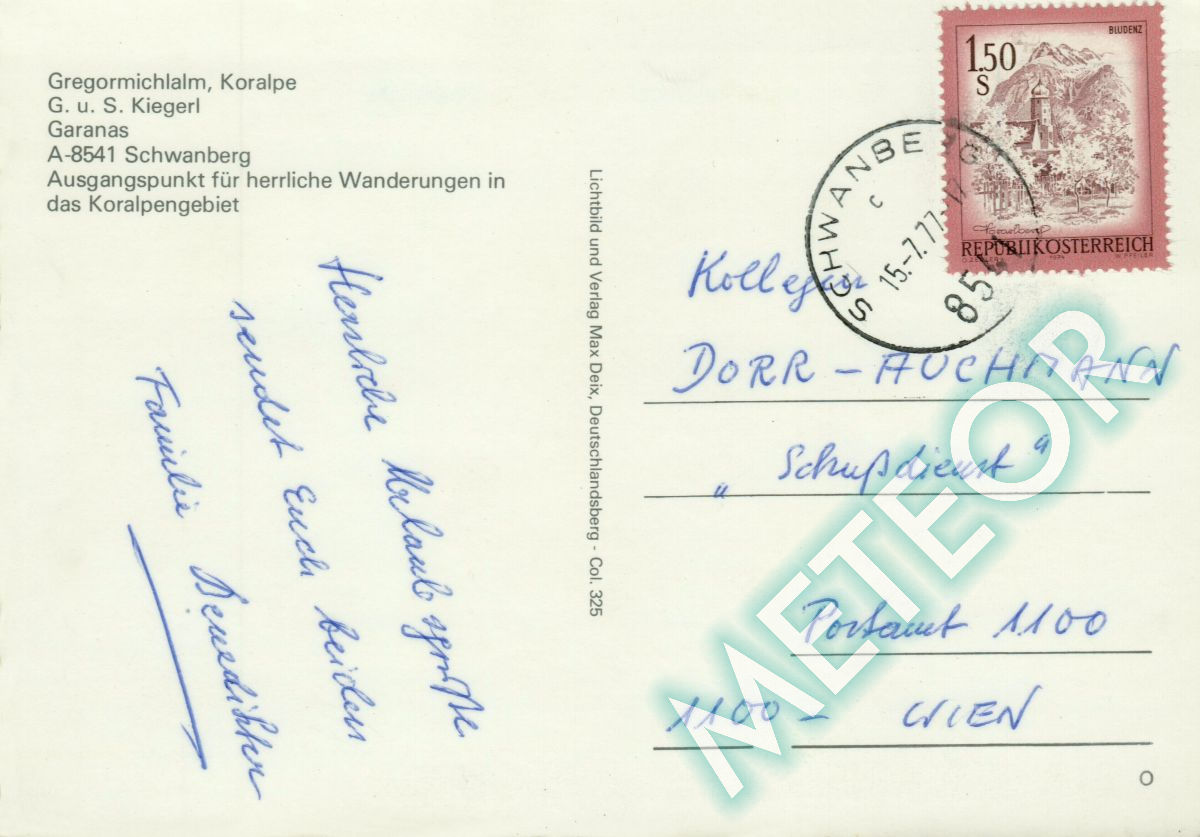 Gregormichlalm, Koralpe
G. u. S. Kiegerl
Garanas
A-8541 Schwanberg
Ausgangspunkt für herrliche Wanderungen in
das Koralpengebiet
Herzliche Urlaubsgrüße
sendet Euch beiden
Familie Benedikter
Lichtbild und Verlag Max Deix, Deutschlandsberg - Col. 325
BLUDENZ
1.50
S
Vorarlberg
REPUBLIK ÖSTERREICH
1974
W. PFEILER
SCHWANBERG
c
15.-7.77
Kollegen
DORR - AUCHMANN
„Schußdienst"
Postamt 1100
1100 - WIEN
METEOR
O